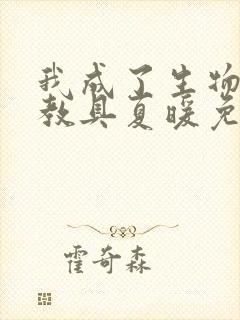 我成了生物
教具夏暖免
霍奇森